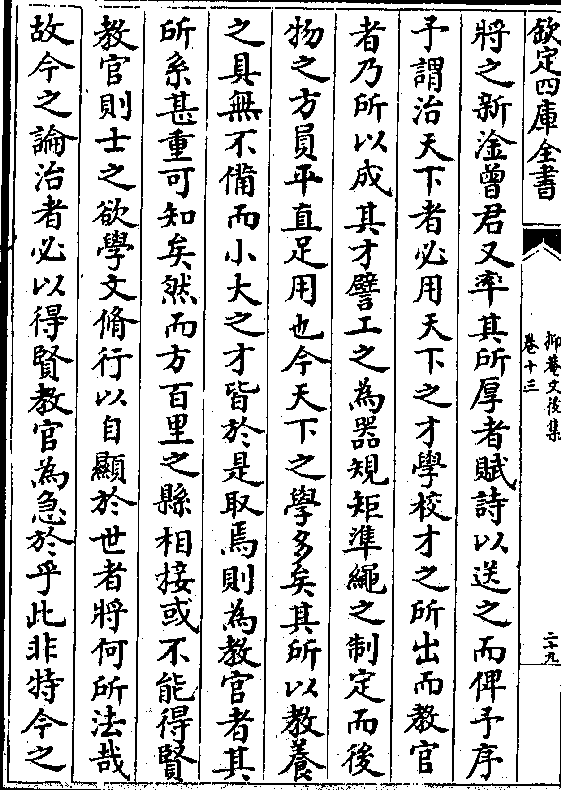 欽定四庫全書
抑菴文後集
卷十三
二十九
將之新淦曾君又率其所厚者賦詩以送之而俾予序
予謂治天下者必用天下之才學校才之所出而教官
者乃所以成其才譬工之為器規矩準繩之制定而後
物之方員平直足用也今天下之學多矣其所以教養
之具無不備而小大之才皆於是取焉則為教官者其
所系甚重可知矣然而方百里之縣相接或不能得賢
教官則士之欲學文脩行以自顯於世者將何所法哉
故今之論治者必以得賢教官為急於乎此非特今之